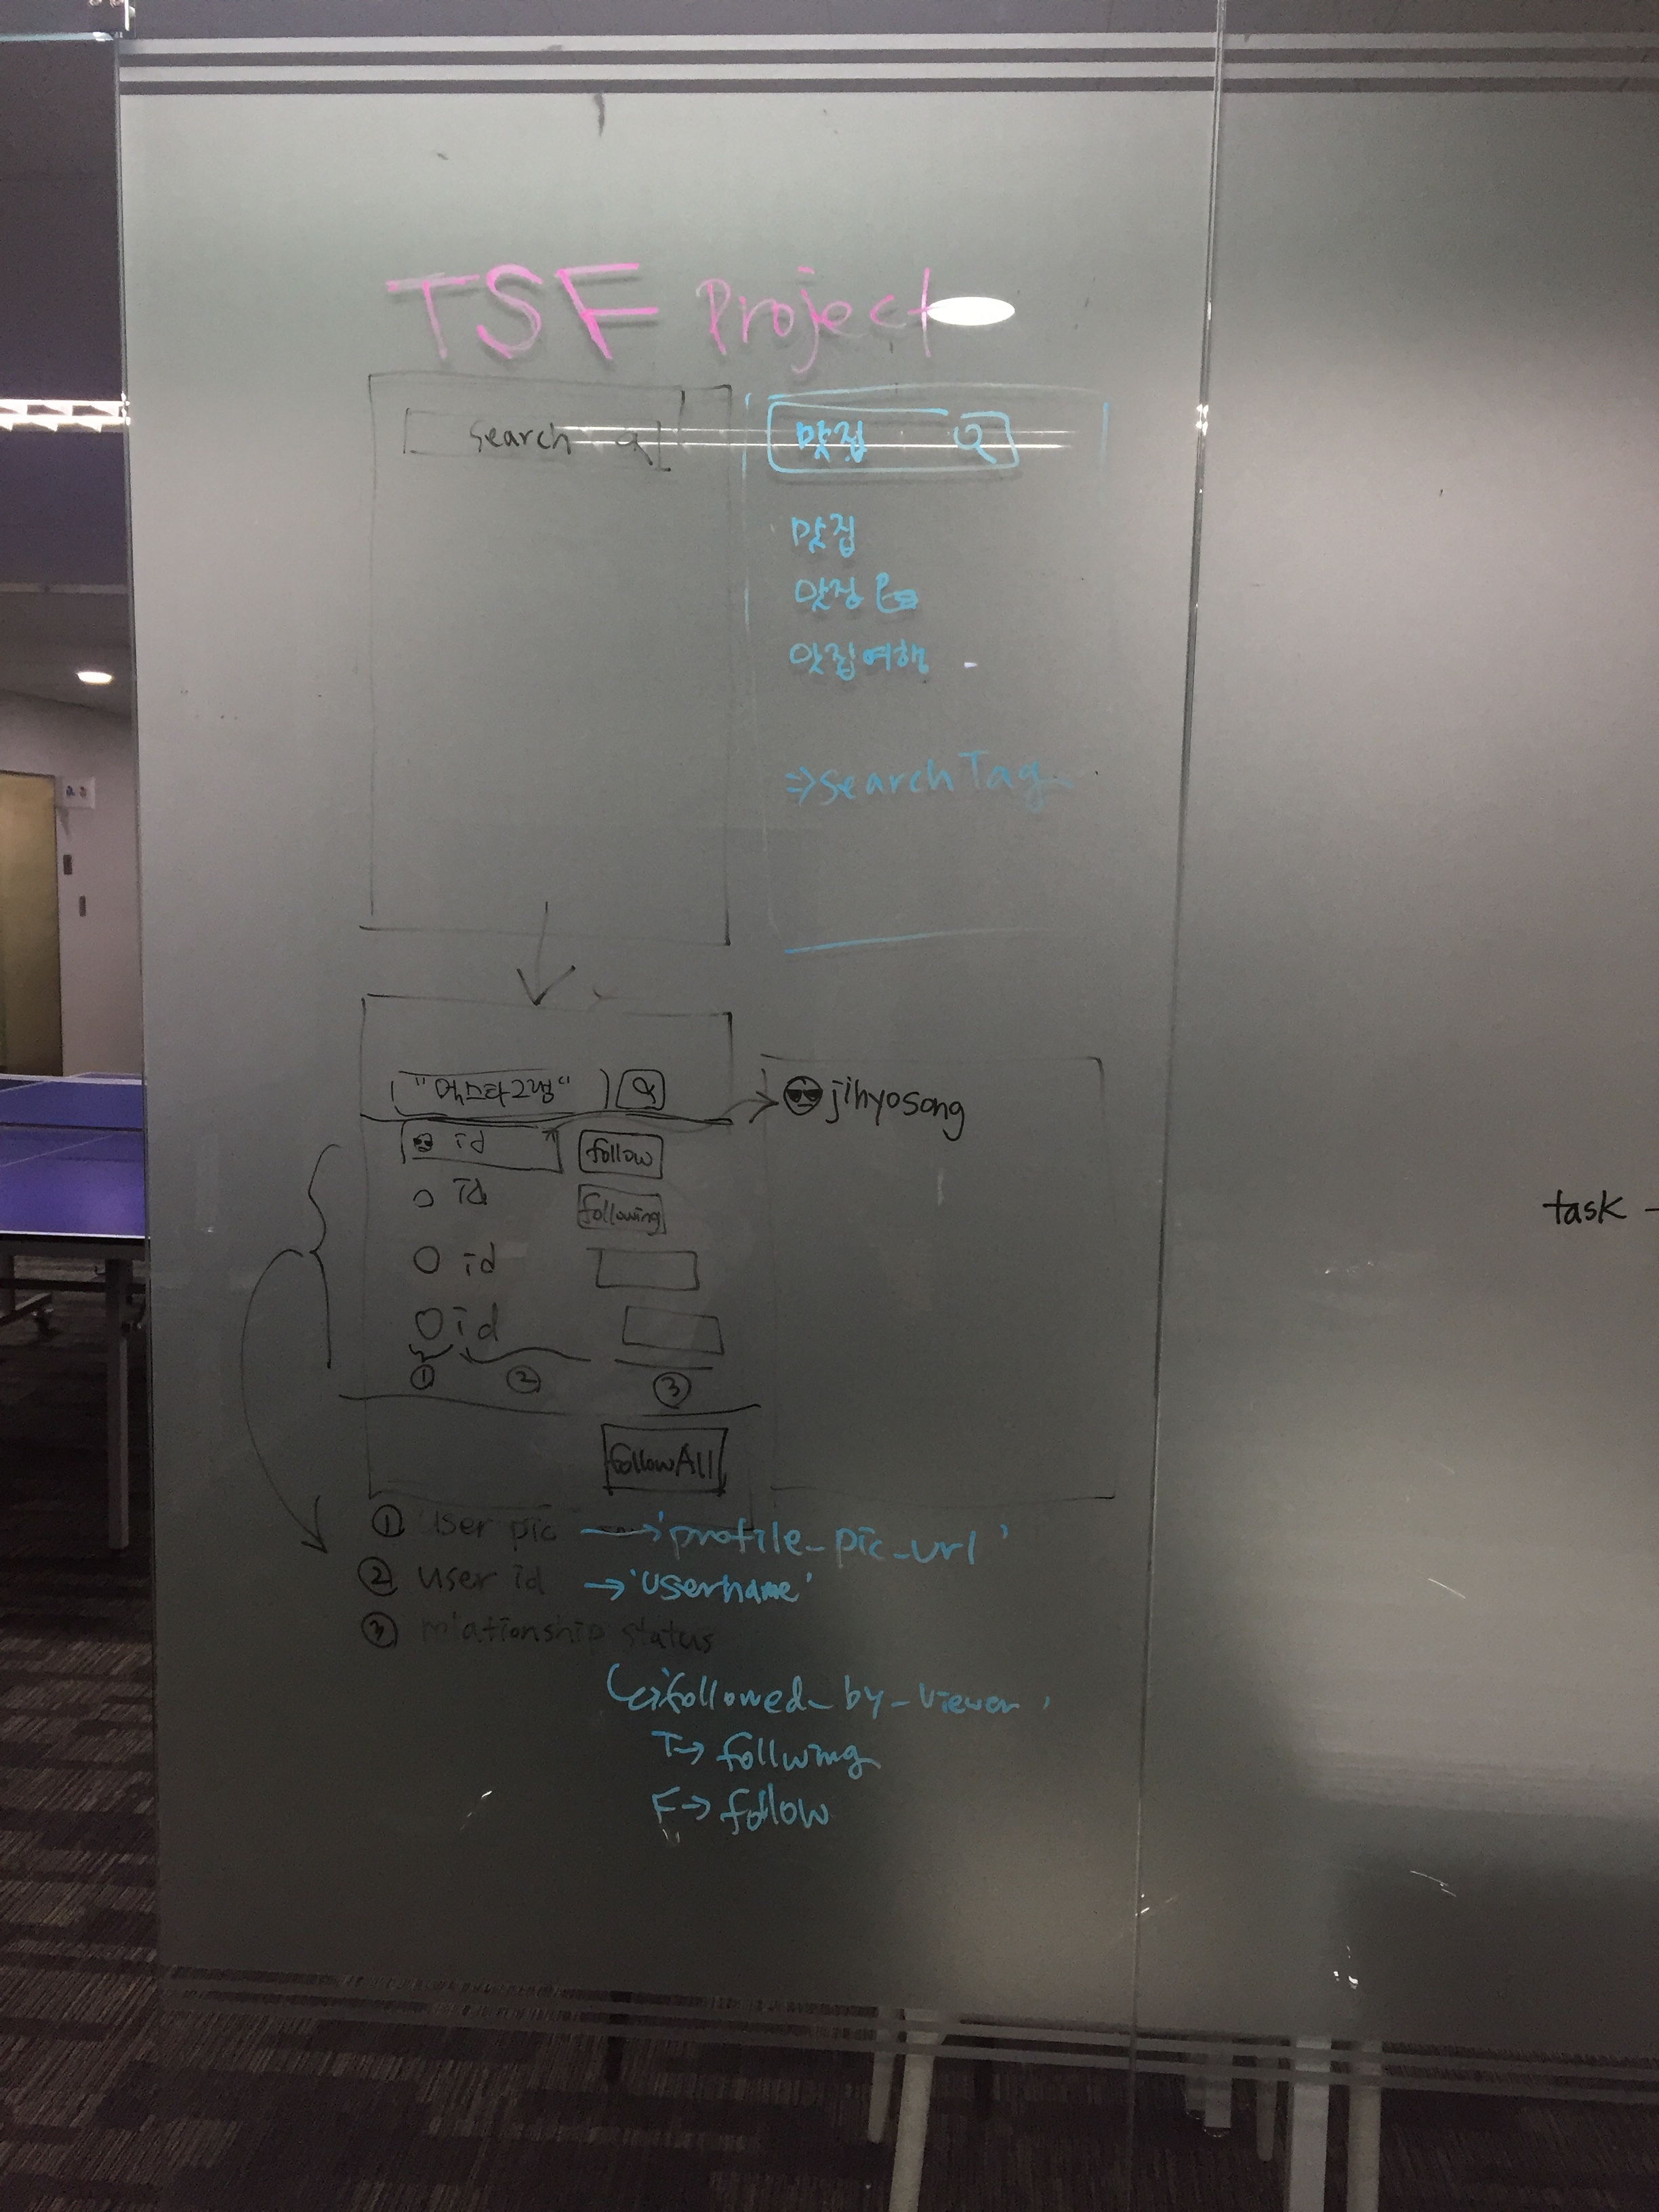 TSF Project
Search
맛집
맛집
맛집
맛집여행
⇒ searchTag
"먹스타그램"
jihyosong
id follow
id following
id
id
① ② ③
followAll
task
① user pic → 'profile_pic_url'
② user id → 'username'
③ relationship status
↳ 'followed_by_viewer'
T→ follwing
F→ follow